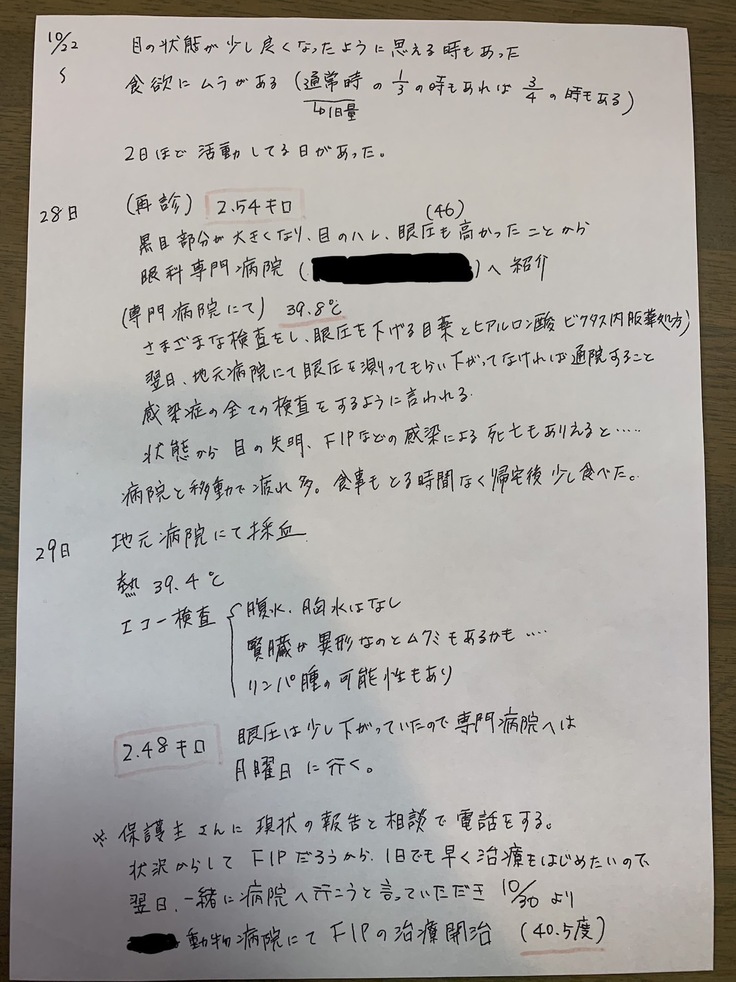 10/22 目の状態が少し良くなったように思える時もあった
〜 食欲にムラがある (通常時の 1/3 の時もあれば 3/4 の時もある)
↳1日量
2日ほど 活動してる日があった。
28日 (再診) 2.54キロ
(46)
黒目部分が大きくなり、目のハレ、眼圧も高かったことから
眼科専門病院 ( )へ紹介
(専門病院にて) 39.8℃
さまざまな検査をし、眼圧を下げる目薬とヒアルロン酸 ビクタス内服薬処方)
翌日、地元病院にて眼圧を測ってもらい下がってなければ通院すること
感染症の全ての検査をするように言われる.
状態から目の失明、FIPなどの感染による死亡もありえると……
病院と移動で疲れ多。食事もとる時間なく帰宅後少し食べた。
29日 地元病院にて採血
熱 39.4℃
エコー検査 腹水、胸水はなし
腎臓が異形なのとムクミもあるかも….
リンパ腫の可能性もあり
2.48キロ 眼圧は少し下がっていたので専門病院へは
月曜日に行く。
※ 保護主さんに現状の報告と相談で電話をする。
状況からして FIPだろうから、1日でも早く治療をはじめたいので、
翌日、一緒に病院へ行こうと言っていただき 10/30 より
動物病院にて FIPの治療開始 (40.5度)